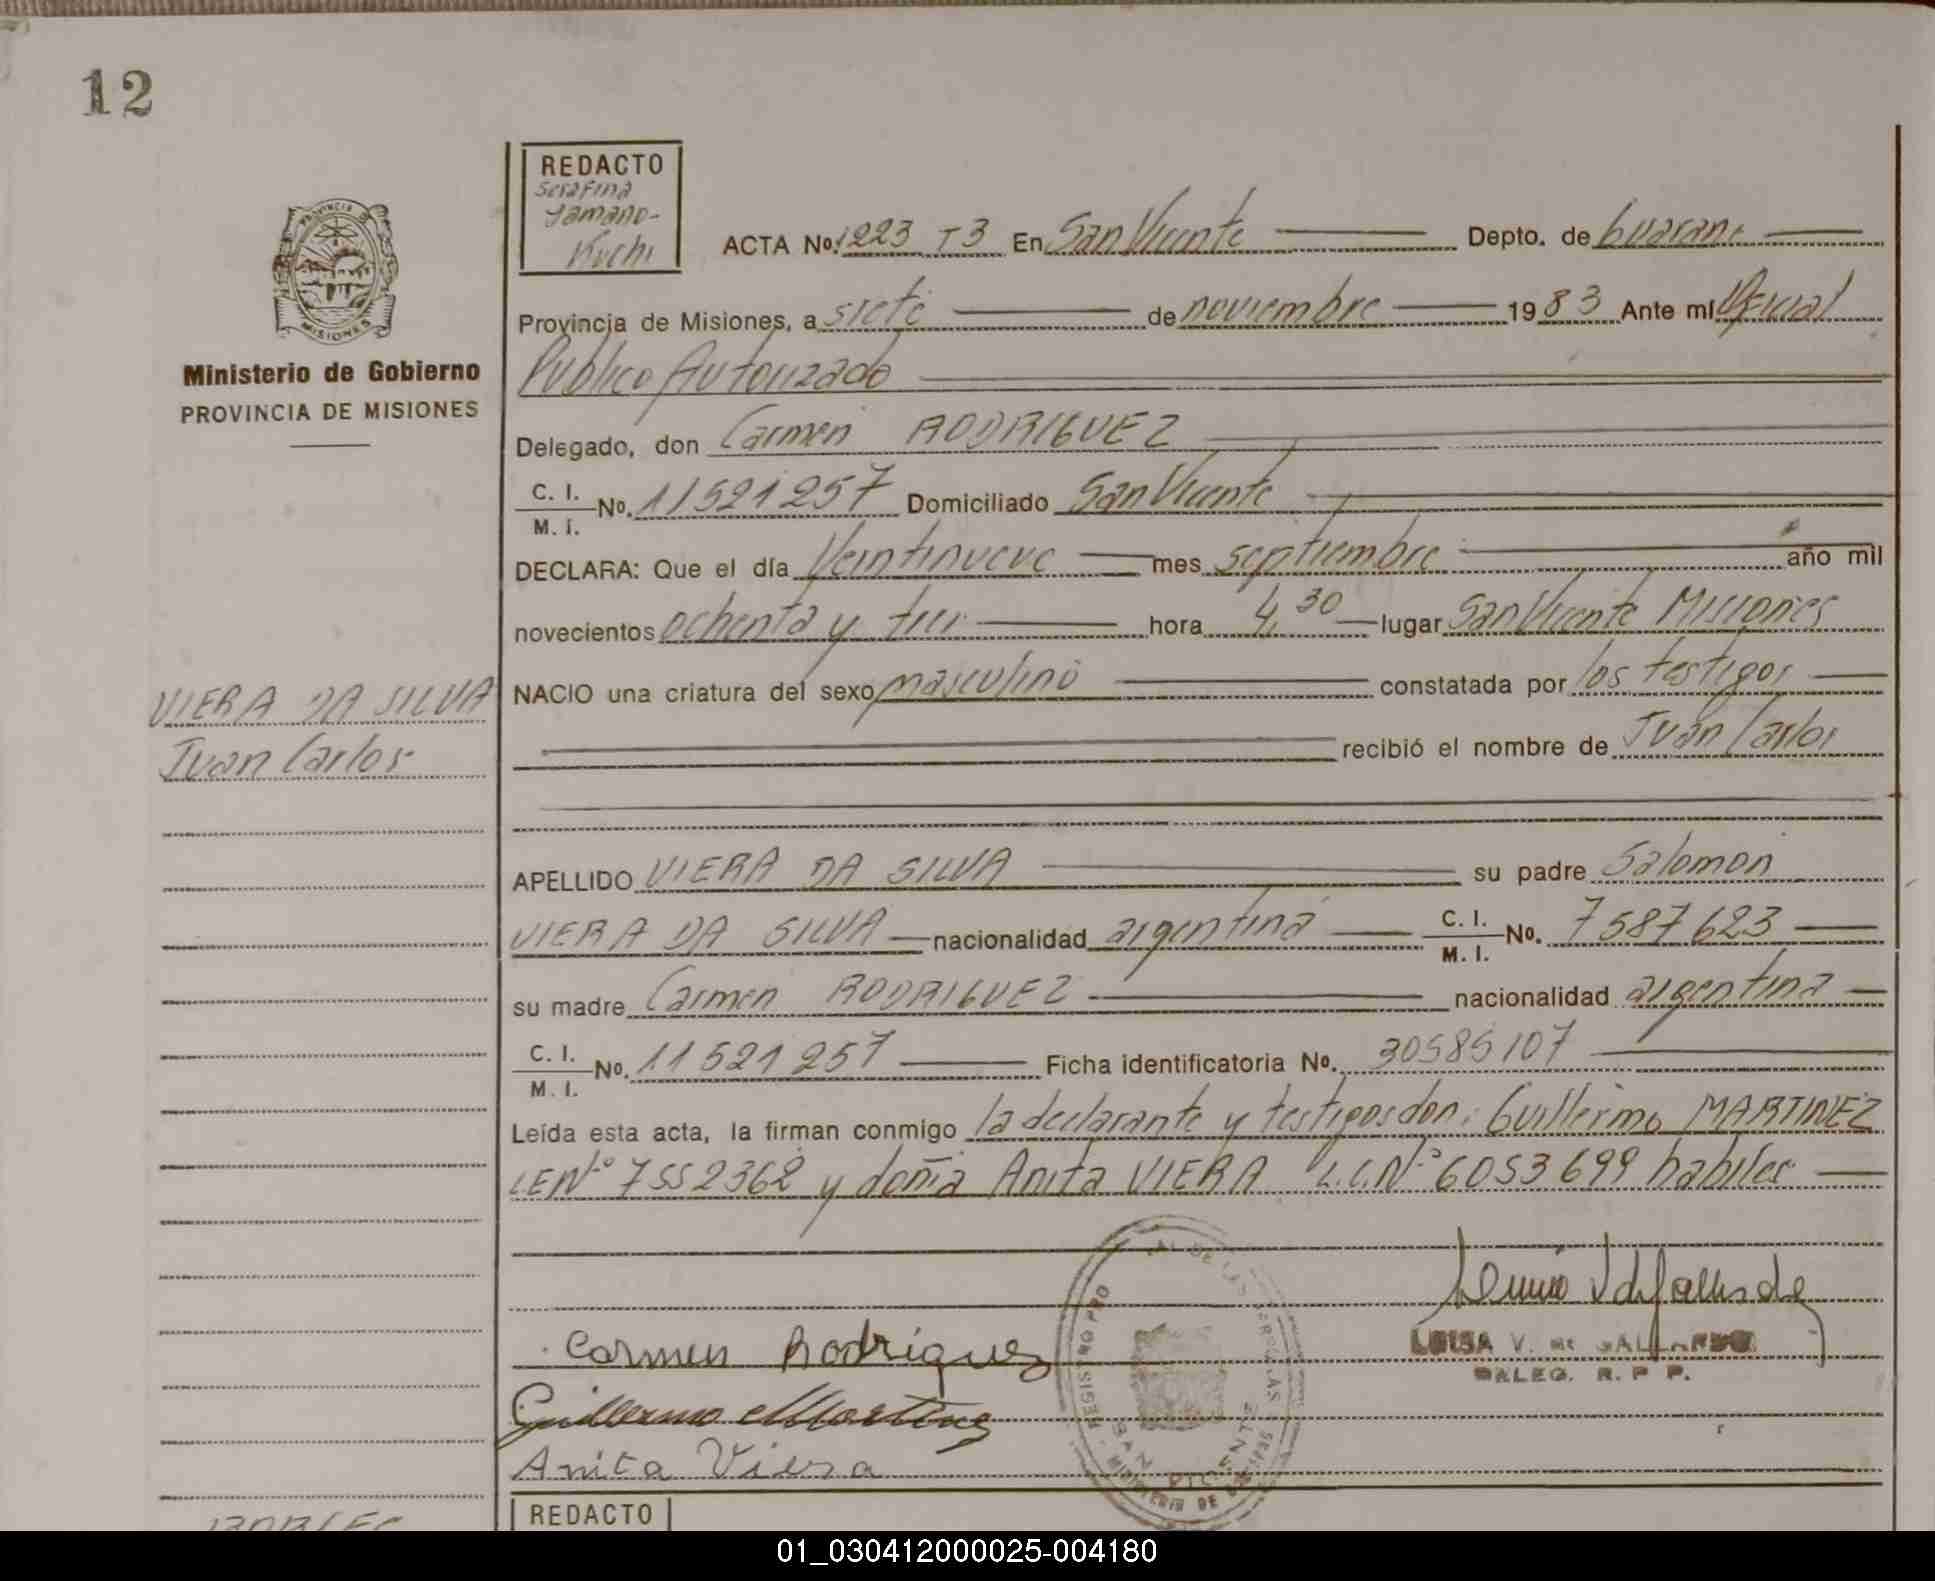 12
REDACTO
Serafina
Yamano-
Kuchi
PROVINCIA DE
MISIONES
Ministerio de Gobierno
PROVINCIA DE MISIONES
ACTA No. 1223 T3 En San Vicente Depto. de Guarani
Provincia de Misiones, a siete de noviembre 1983 Ante mí Oficial
Publico Autorizado
Delegado, don Carmen RODRIGUEZ
C. I. / M. I. No. 11521257 Domiciliado San Vicente
DECLARA: Que el día Veintinueve mes septiembre año mil
novecientos ochenta y tres hora 4,30 lugar San Vicente Misiones
VIERA DA SILVA
NACIO una criatura del sexo masculino constatada por los testigos
Juan Carlos
recibió el nombre de Juan Carlos
APELLIDO VIERA DA SILVA su padre Salomon
VIERA DA SILVA nacionalidad argentina C. I. / M. I. No. 7587623
su madre Carmen RODRIGUEZ nacionalidad argentina
C. I. / M. I. No. 11521257 Ficha identificatoria No. 30585107
Leída esta acta, la firman conmigo la declarante y testigos don: Guillermo MARTINEZ
LEN° 7552362 y doña Anita VIERA L.C.N° 6053699 habiles
LUISA V. de GALLARDO
DALEG. R. P P.
Carmen Rodriguez
Guillermo Martinez
Anita Viera
SAN VICENTE
REDACTO
01_030412000025-004180